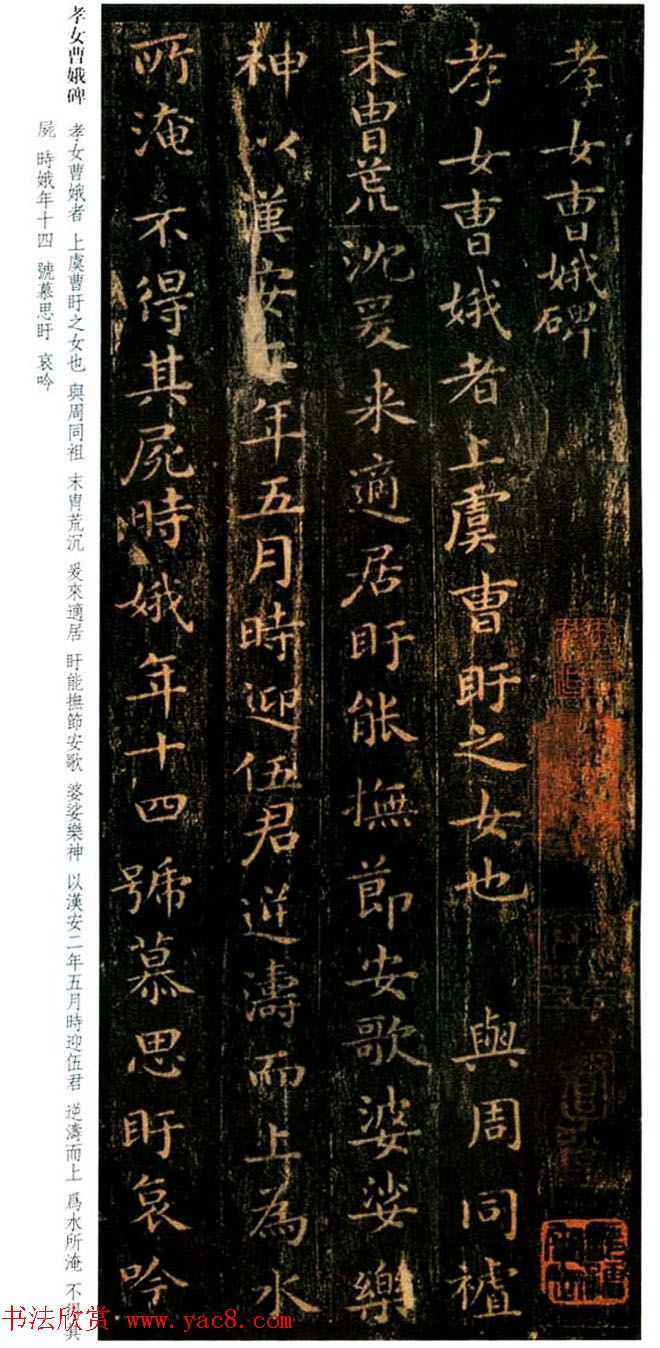 孝女曹娥碑
孝女曹娥者上虞曹盱之女也 與周同禮
末胄荒沈爰来適居盱能撫節安歌婆娑樂
神以漢安二年五月時迎伍君逆濤而上為水
所淹 不得其屍時娥年十四號慕思盱哀吟
孝女曹娥碑
孝女曹娥者 上虞曹盱之女也 與周同祖 末胄荒沉 爰來適居 盱能撫節安歌 婆娑樂神 以漢安二年五月時迎伍君 逆濤而上 爲水所淹 不得其
屍 時娥年十四 號慕思盱 哀吟
书法欣赏 www.yac8.com